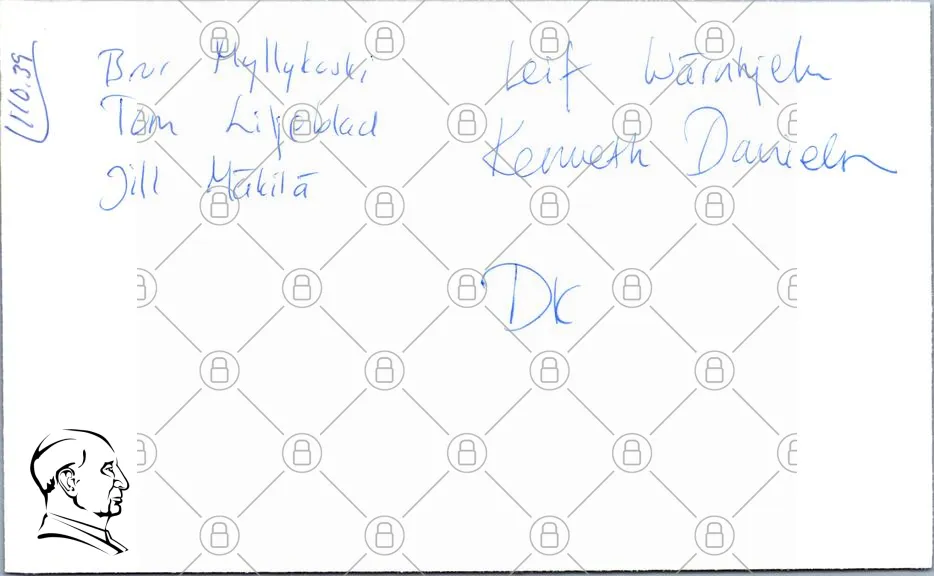 110.39
Bror Myllykoski
Tom Liljeblad
Jill Mäkilä
Leif
Kenneth Danielsson
DK